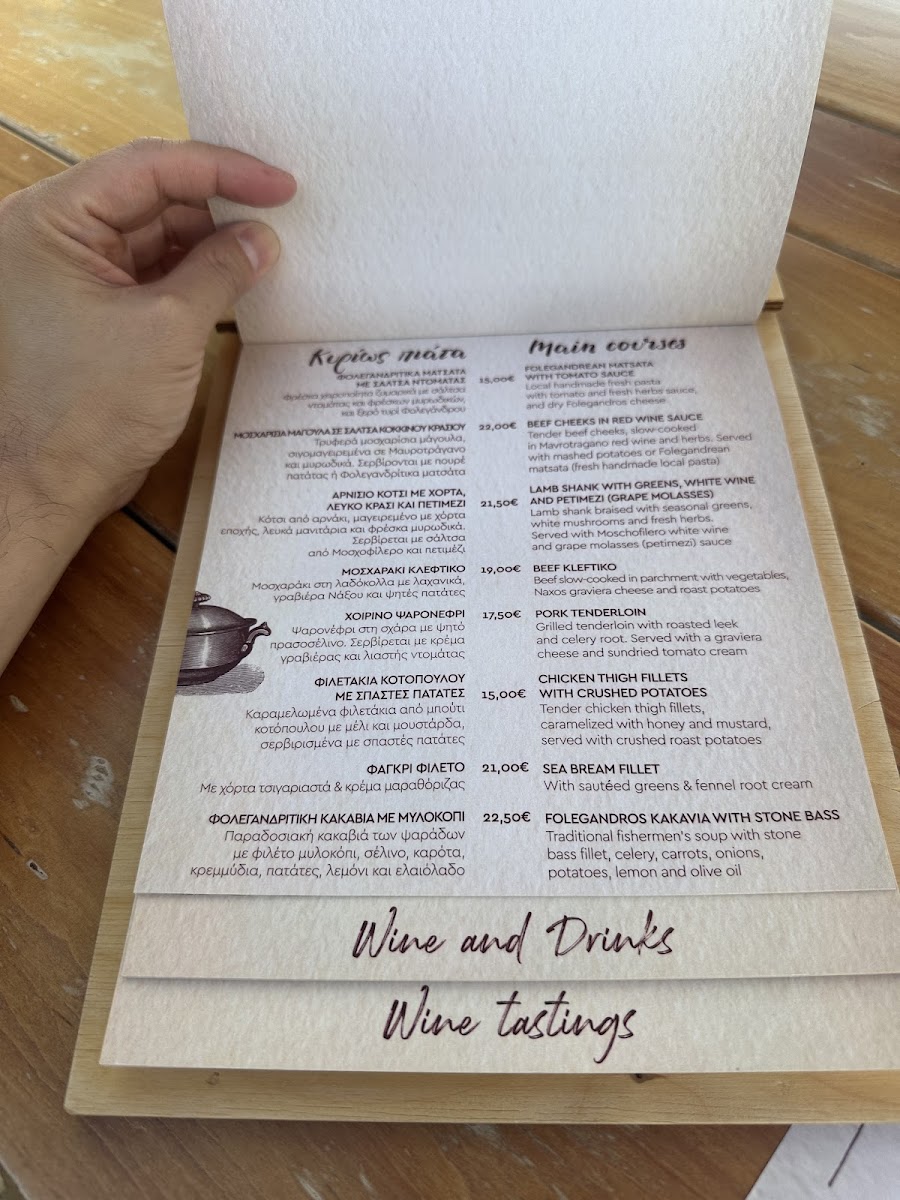 Κυρίως πιάτα
Main courses
ΦΟΛΕΓΑΝΔΡΙΤΙΚΑ ΜΑΤΣΑΤΑ
ΜΕ ΣΑΛΤΣΑ ΝΤΟΜΑΤΑΣ
Φρέσκα χειροποίητα ζυμαρικά με σάλτσα
ντομάτας και φρέσκων μυρωδικών,
και ξερό τυρί Φολεγάνδρου
15,00€
FOLEGANDREAN MATSATA
WITH TOMATO SAUCE
Local handmade fresh pasta
with tomato and fresh herbs sauce,
and dry Folegandros cheese
ΜΟΣΧΑΡΙΣΙΑ ΜΑΓΟΥΛΑ ΣΕ ΣΑΛΤΣΑ ΚΟΚΚΙΝΟΥ ΚΡΑΣΙΟΥ
Τρυφερά μοσχαρίσια μάγουλα,
σιγομαγειρεμένα σε Μαυροτράγανο
και μυρωδικά. Σερβίρονται με πουρέ
πατάτας ή Φολεγανδρίτικα ματσάτα
22,00€
BEEF CHEEKS IN RED WINE SAUCE
Tender beef cheeks, slow-cooked
in Mavrotragano red wine and herbs. Served
with mashed potatoes or Folegandrean
matsata (fresh handmade local pasta)
ΑΡΝΙΣΙΟ ΚΟΤΣΙ ΜΕ ΧΟΡΤΑ,
ΛΕΥΚΟ ΚΡΑΣΙ ΚΑΙ ΠΕΤΙΜΕΖΙ
Κότσι από αρνάκι, μαγειρεμένο με χόρτα
εποχής, λευκά μανιτάρια και φρέσκα μυρωδικά.
Σερβίρεται με σάλτσα
από Μοσχοφίλερο και πετιμέζι
21,50€
LAMB SHANK WITH GREENS, WHITE WINE
AND PETIMEZI (GRAPE MOLASSES)
Lamb shank braised with seasonal greens,
white mushrooms and fresh herbs.
Served with Moschofilero white wine
and grape molasses (petimezi) sauce
ΜΟΣΧΑΡΑΚΙ ΚΛΕΦΤΙΚΟ
Μοσχαράκι στη λαδόκολλα με λαχανικά,
γραβιέρα Νάξου και ψητές πατάτες
19,00€
BEEF KLEFTIKO
Beef slow-cooked in parchment with vegetables,
Naxos graviera cheese and roast potatoes
ΧΟΙΡΙΝΟ ΨΑΡΟΝΕΦΡΙ
Ψαρονέφρι στη σχάρα με ψητό
πρασοσέλινο. Σερβίρεται με κρέμα
γραβιέρας και λιαστής ντομάτας
17,50€
PORK TENDERLOIN
Grilled tenderloin with roasted leek
and celery root. Served with a graviera
cheese and sundried tomato cream
ΦΙΛΕΤΑΚΙΑ ΚΟΤΟΠΟΥΛΟΥ
ΜΕ ΣΠΑΣΤΕΣ ΠΑΤΑΤΕΣ
Καραμελωμένα φιλετάκια από μπούτι
κοτόπουλου με μέλι και μουστάρδα,
σερβιρισμένα με σπαστές πατάτες
15,00€
CHICKEN THIGH FILLETS
WITH CRUSHED POTATOES
Tender chicken thigh fillets,
caramelized with honey and mustard,
served with crushed roast potatoes
ΦΑΓΚΡΙ ΦΙΛΕΤΟ
Με χόρτα τσιγαριαστά & κρέμα μαραθόριζας
21,00€
SEA BREAM FILLET
With sautéed greens & fennel root cream
ΦΟΛΕΓΑΝΔΡΙΤΙΚΗ ΚΑΚΑΒΙΑ ΜΕ ΜΥΛΟΚΟΠΙ
Παραδοσιακή κακαβιά των ψαράδων
με φιλέτο μυλοκόπι, σέλινο, καρότα,
κρεμμύδια, πατάτες, λεμόνι και ελαιόλαδο
22,50€
FOLEGANDROS KAKAVIA WITH STONE BASS
Traditional fishermen's soup with stone
bass fillet, celery, carrots, onions,
potatoes, lemon and olive oil
Wine and Drinks
Wine tastings